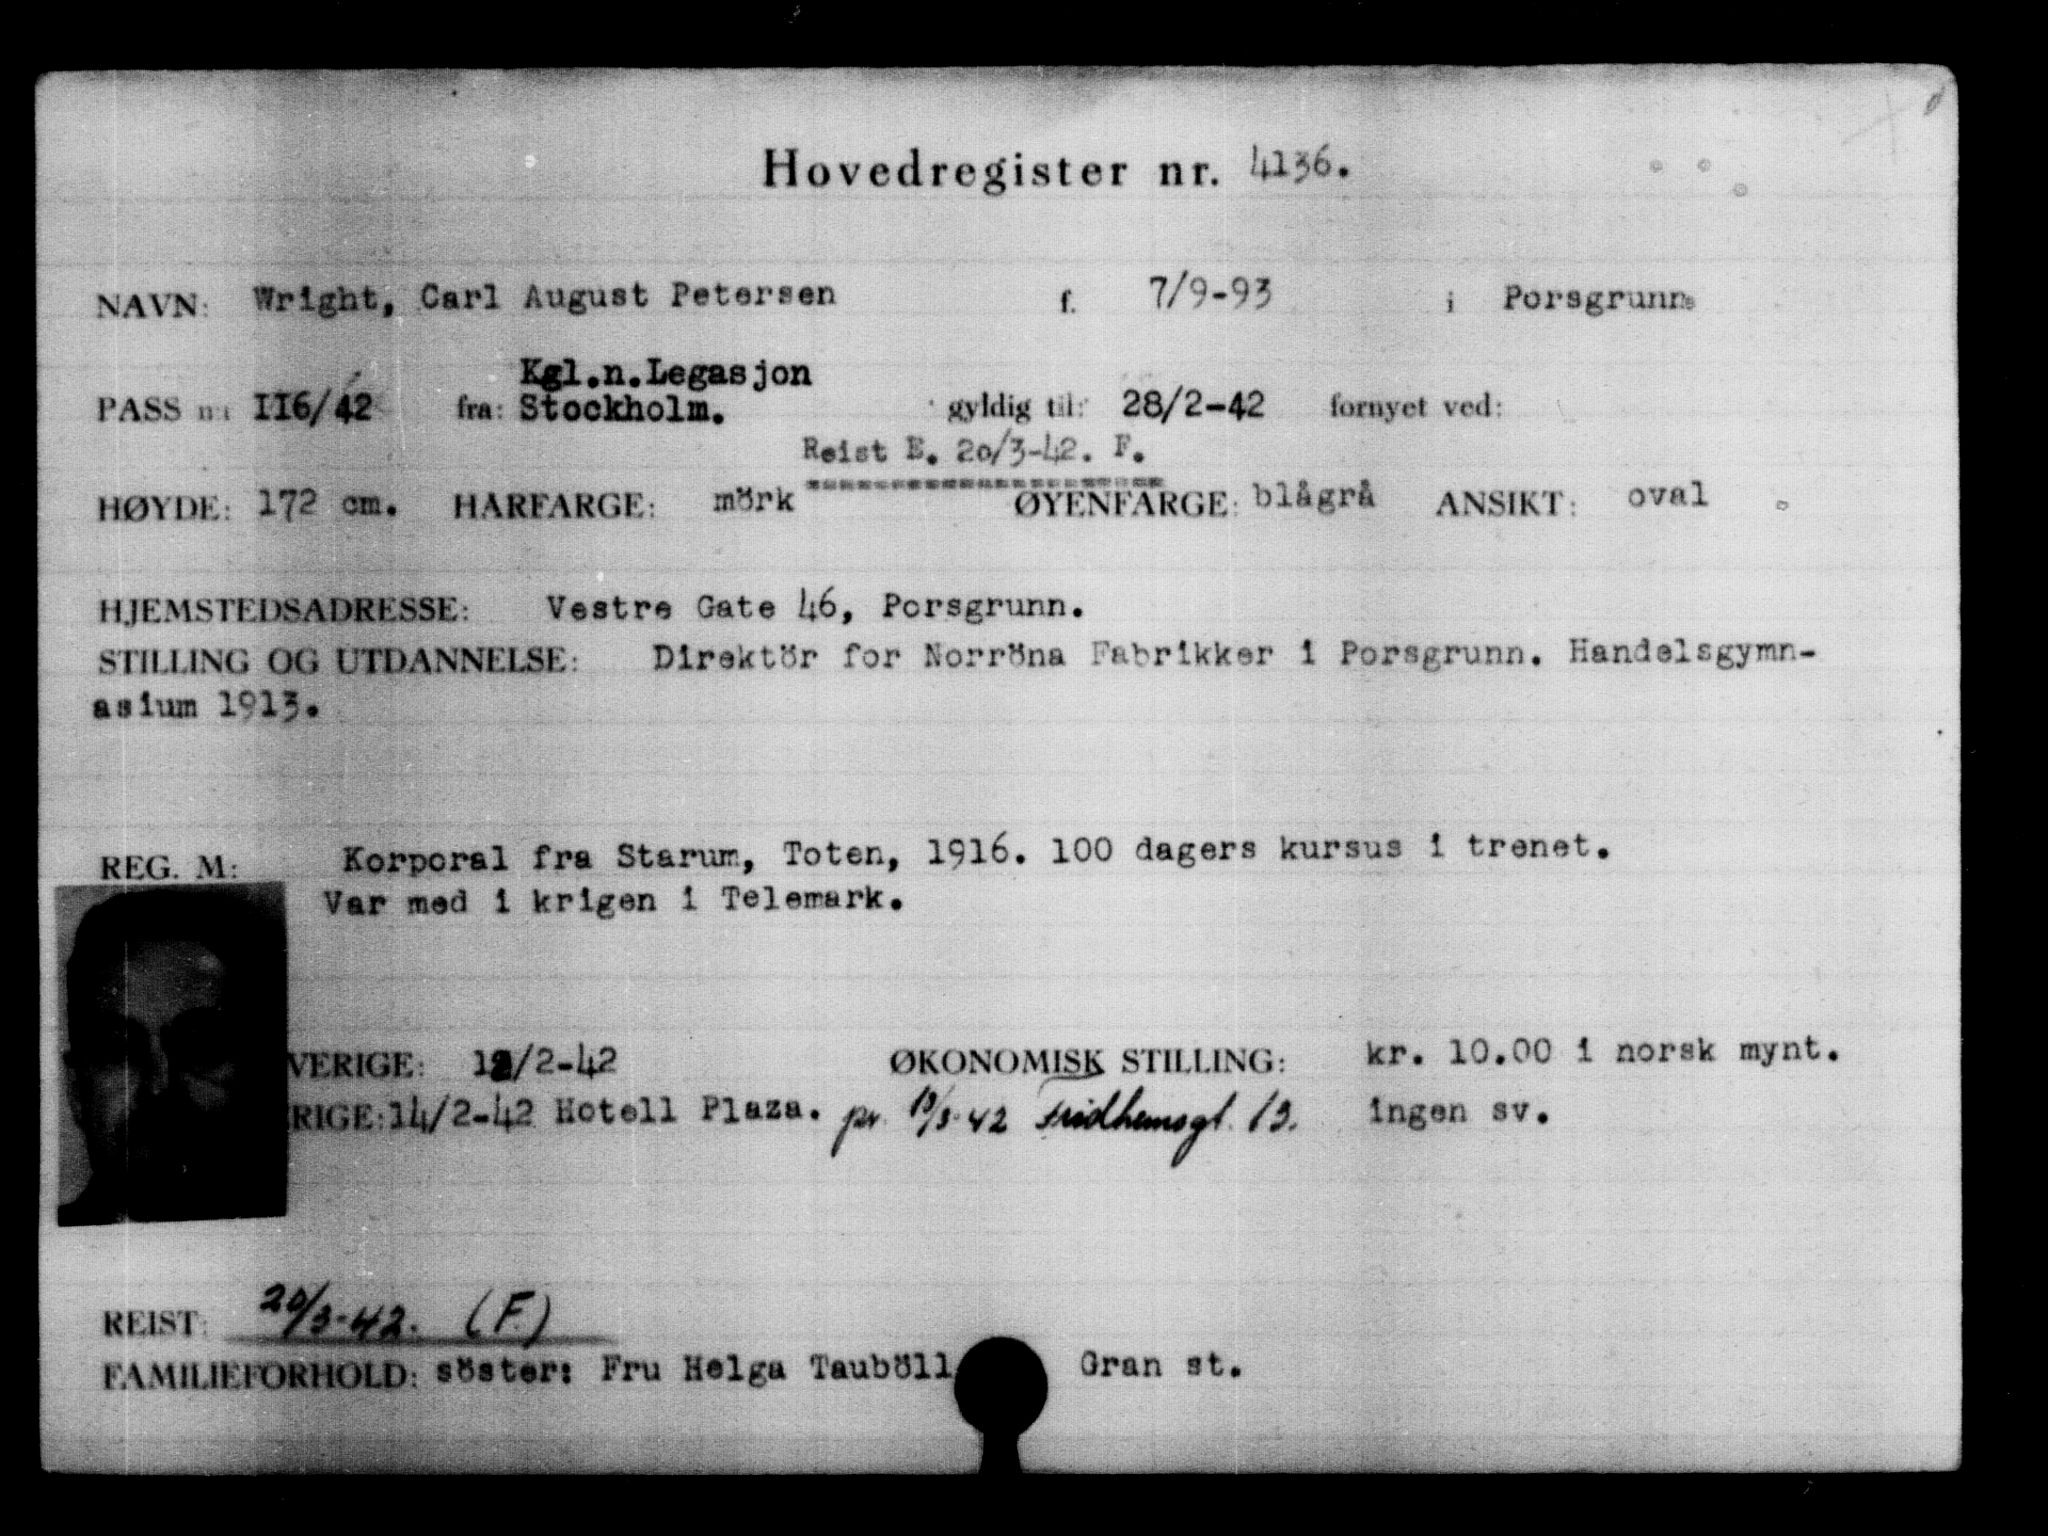 Hovedregister nr. 4136.
NAVN: Wright, Carl August Petersen f. 7/9-93 i Porsgrunn
Kgl.n.Legasjon
PASS nr. II6/42 fra: Stockholm. gyldig til: 28/2-42 fornyet ved:
Reist E. 20/3-42. F.
HØYDE: 172 cm. HARFARGE: mörk ØYENFARGE: blågrå ANSIKT: oval
HJEMSTEDSADRESSE: Vestre Gate 46, Porsgrunn.
STILLING OG UTDANNELSE: Direktör for Norröna Fabrikker i Porsgrunn. Handelsgymn-
asium 1913.
REG. M: Korporal fra Starum, Toten, 1916. 100 dagers kursus i trenet.
Var med i krigen i Telemark.
VERIGE: 12/2-42 ØKONOMISK STILLING: kr. 10.00 i norsk mynt.
RIGE: 14/2-42 Hotell Plaza. pr. 13/3-42 Fridhemsgt. 13. ingen sv.
REIST: 20/3-42. (F.)
FAMILIEFORHOLD: söster: Fru Helga Tauböll Gran st.